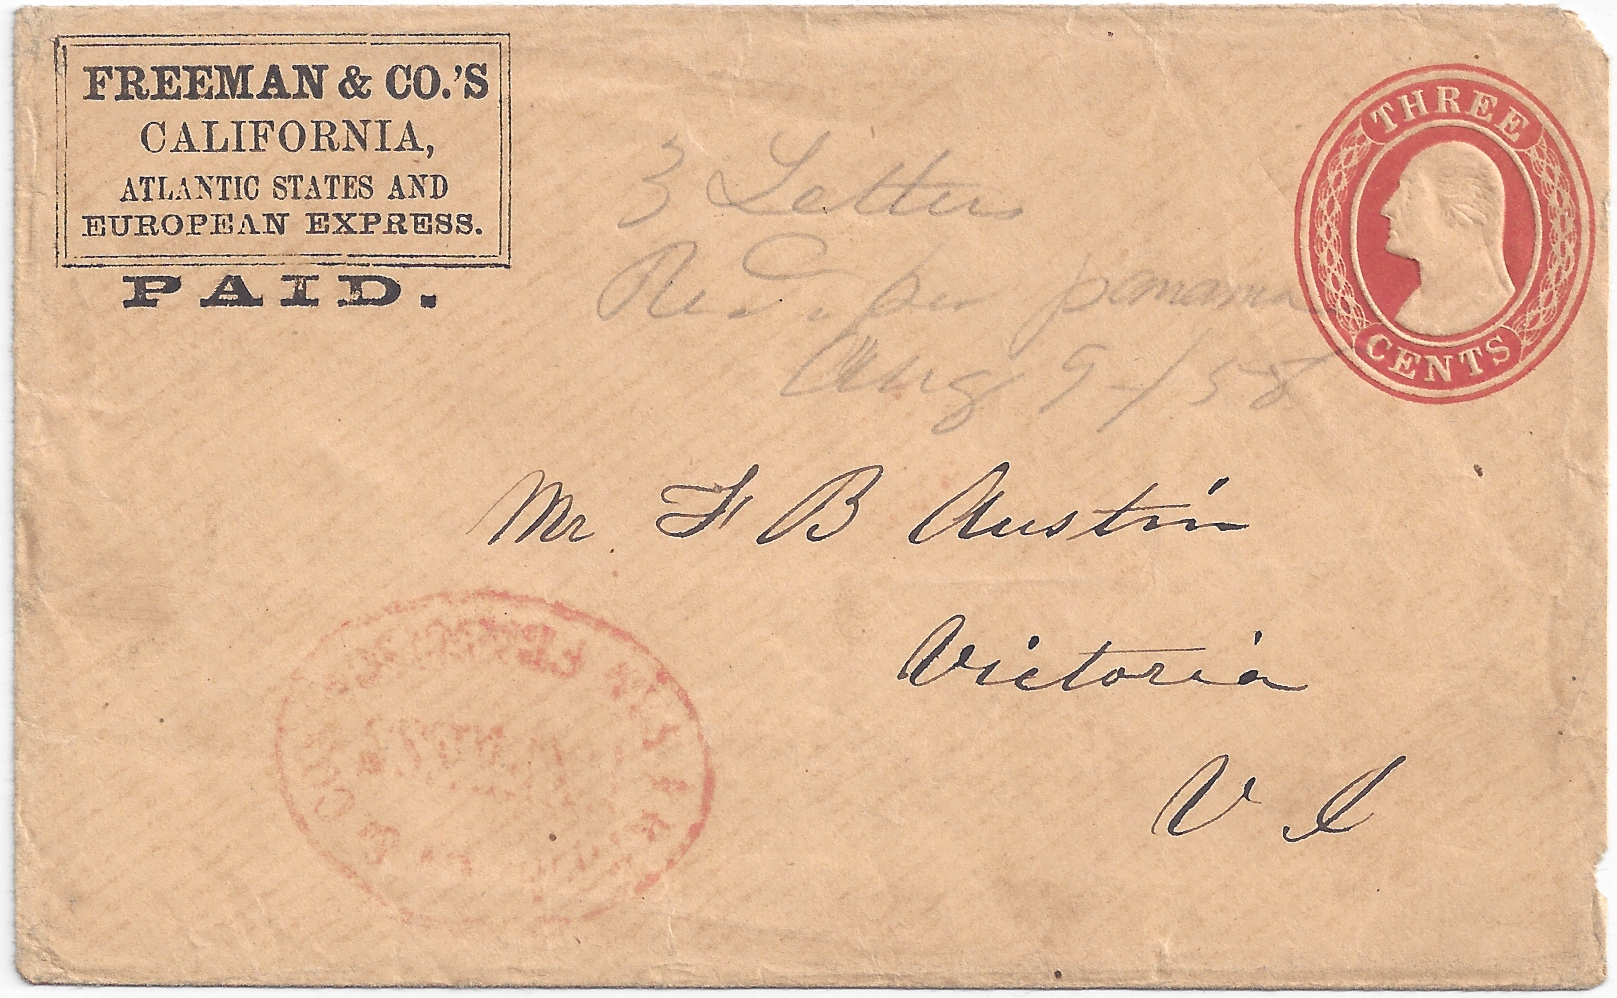 FREEMAN & CO.'S
CALIFORNIA,
ATLANTIC STATES AND
EUROPEAN EXPRESS.
PAID.
THREE
CENTS
3 Letters
Rec. per panama
Aug 9-/58
Mr. F B Austin
Victoria
V I